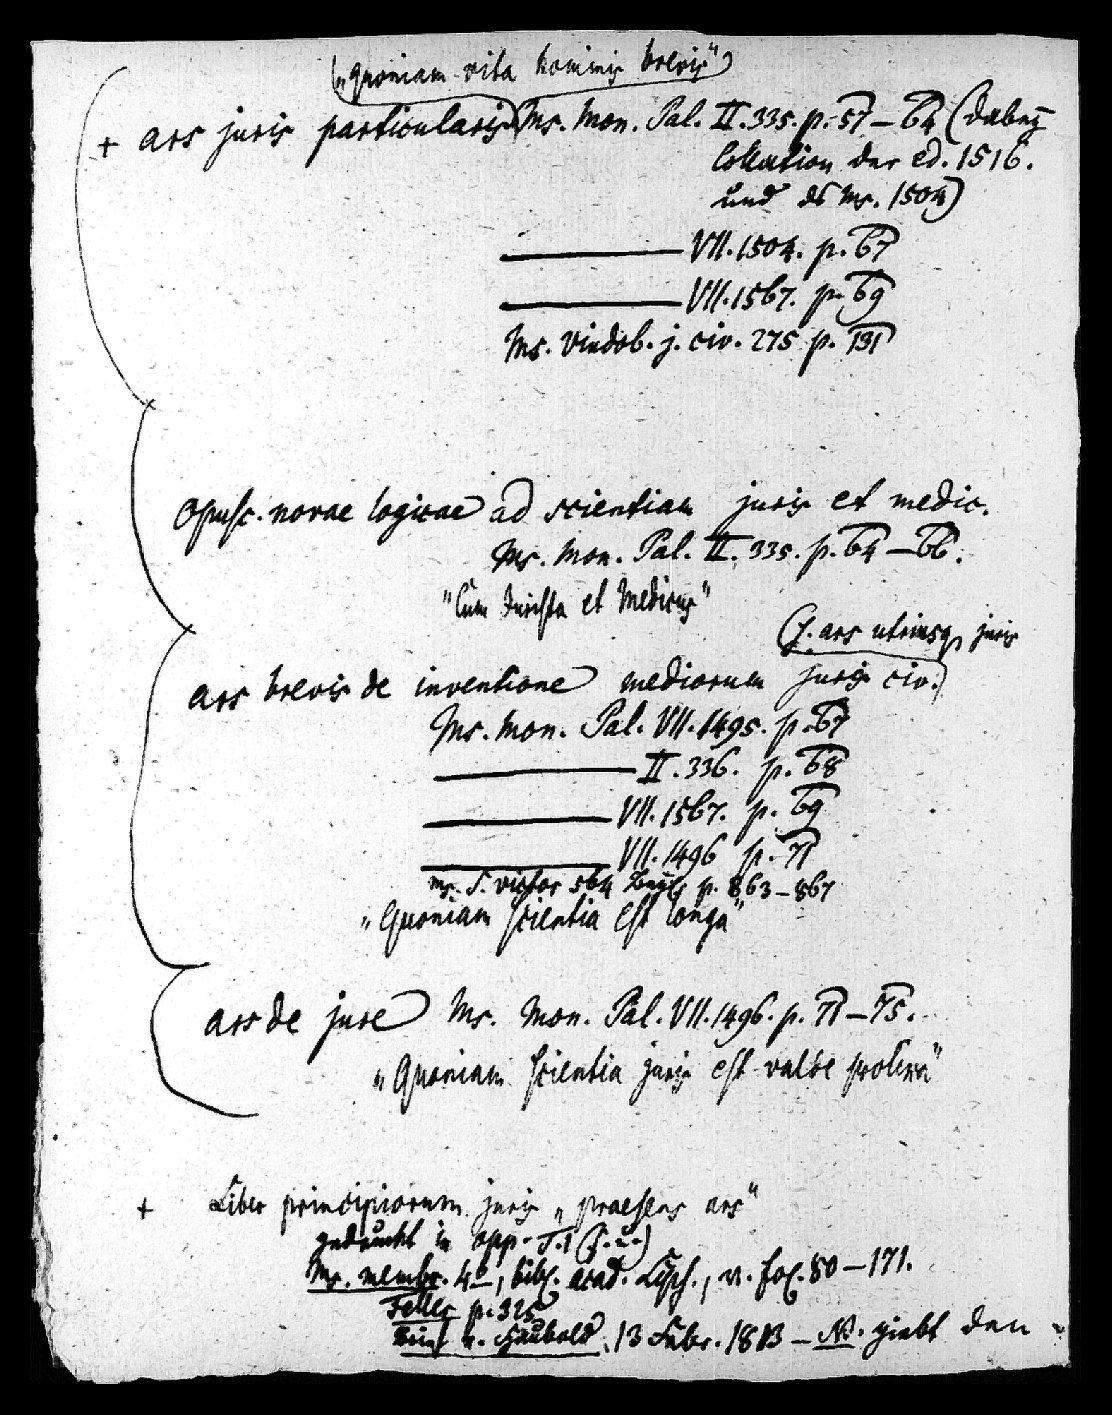 („quoniam vita hominis brevis“)
+ ars juris particularis Ms. Mon. Pal. II. 335. p. 57 – 64 (dabey
Collation der ed. 1516.
und ds Ms. 1504)
——— VII. 1504. p. 67
——— VII. 1567. p. 69
Ms. Vindob. j. civ. 275 p. 131
Opusc. novae logicae ad scientiam juris et medic.
Ms. Mon. Pal. II. 335. p. 64 – 66.
"Cum Jurista et Medicus"
(s. ars utriusq. juris
ars brevis de inventione mediorum juris civ.)
Ms. Mon. Pal. VII. 1495. p. 67
——— II. 336. p. 68
——— VII. 1567. p. 69
——— VII. 1496 p. 71
ms. S. victor 564 p. 863–867
„Quoniam scientia est longa“
ars de jure Ms. Mon. Pal. VII. 1496. p. 71 – 75.
„Quoniam scientia juris est valde prolixa“
+ Liber principiorum juris „praesens ars“
gedruckt in opp. T. 1 (s. u.)
Ms. membr. 4°, bibl. acad. Lips., v. fol. 80 – 171.
Feller p. 325
Brief v. Haubold, 13 Febr. 1813 – N. giebt den